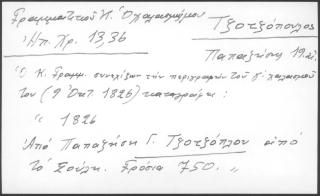 Γραμματικοῦ Κ. Ὁ χαλασμός
Τζοτζόπουλος
Ἠπ. Χρ. 13,36
Παπαζήσης 19.αἰ.
Ὁ Κ. Γραμμ. συνεχίζων τὴν περιγραφὴν τοῦ γ' χαλασμοῦ
του (9 Ὀκτ. 1826) καταγράφει:
" 1826
Ἀπό Παπαζήση Γ. Τζοτζόπλον ἀπό
τό Σούλη. Γρόσια 750. "